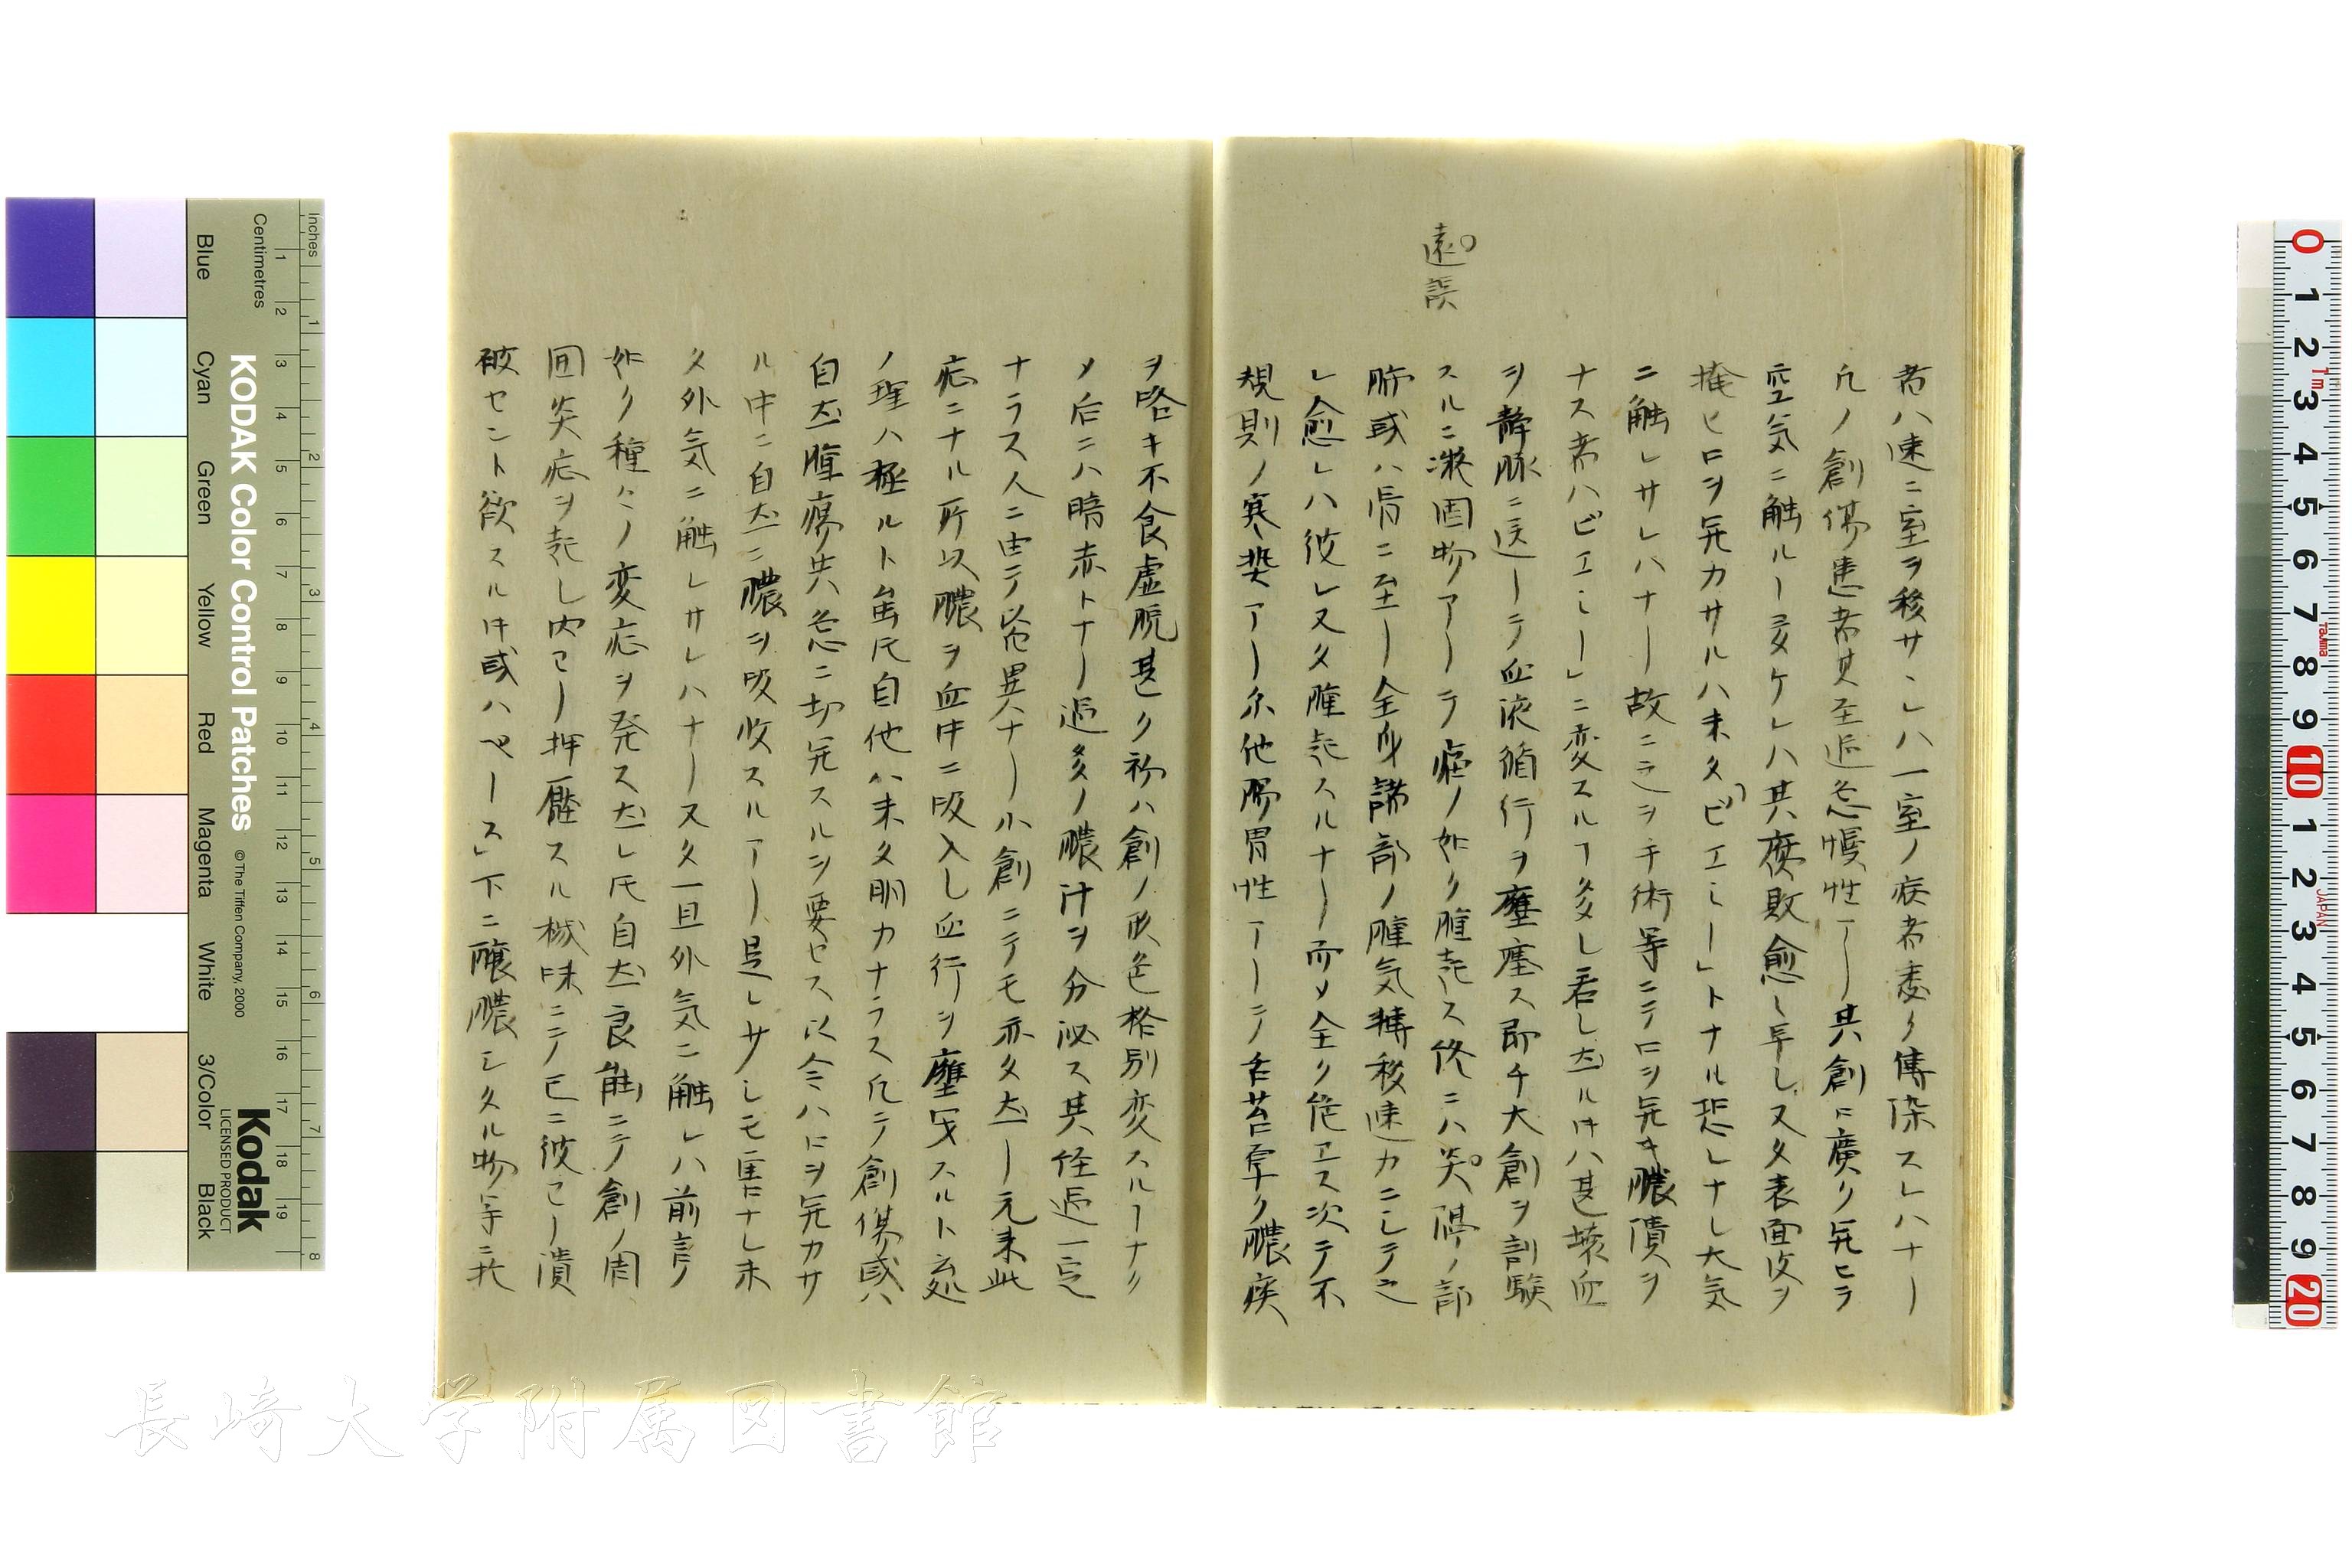 遠誤
者ハ速ニ室ヲ移サヽレハ一室ノ病者悉ク傳染スレハナリ
凡ノ創傷患者其至近急慢性アリ其創口廣ク死ヒラ
空気ニ触ルヿ多ケレハ其腐敗愈〻早し又タ表面皮ヲ
掩ヒ口ヲ死カサルハ未タ「ピエミー」トナル恐レナし大気
ニ触レサレハナリ故ニ之ヲ手術等ニテ口ヲ死キ膿潰ヲ
ナス者ハピエミー」ニ変スルヿ多し若し然ル時ハ甚壊血
ヲ静脉ニ送リテ血液循行ヲ壅塞ス即チ大創ヲ割験
スルニ凝固物アリテ痘ノ如ク腫起ス終ニハ炎停ノ部
肺或ハ唇ニ至リ全身諸部ノ腫気轉移速カニシテ之
レ愈レハ彼レ又タ腫起スルナリ而メ全ク危ヱス次テ不
規則ノ寒熱アリ尓他腸胃性アリテ舌苔厚ク膿痰
ヲ咯キ不食虚脱甚しク初ハ創ノ形色格別変スルヿナク
メ后ニハ暗赤トナリ過多ノ膿汁ヲ分泌ス其径過一定
ナラス人ニ由テ皆異ナリ小創ニテモ亦タ然リ元来此
症ニナル所以膿ヲ血中ニ吸入し血行ヲ壅塞スルト云処
ノ理ハ極ルト雖氏自他ハ未タ明カナラス凡テ創傷或ハ
自然腫瘍共急ニ切死スルヲ要セス以会ハ口ヲ死カサ
ル中ニ自然ニ膿ヲ吸收スルヿアリ是レサしモ害ナし未
タ外気ニ触レサレハナリ又タ一旦外気ニ触レハ前言ノ
如ク種々ノ変症ヲ発ス然レ氏自然良能ニテ創ノ周
囲炎症ヲ起し内ヨリ押壓スル機味ニテ已ニ彼ヨリ潰
破セント欲スル時或ハ「ペース」下ニ釀膿シタル物等ニ於
Inches
Centimetres
Blue
Cyan
Green
Yellow
Red
Magenta
White
3/Color
Black
KODAK Color Control Patches
©The Tiffen Company, 2000
Kodak
LICENSED PRODUCT
長崎大学附属図書館